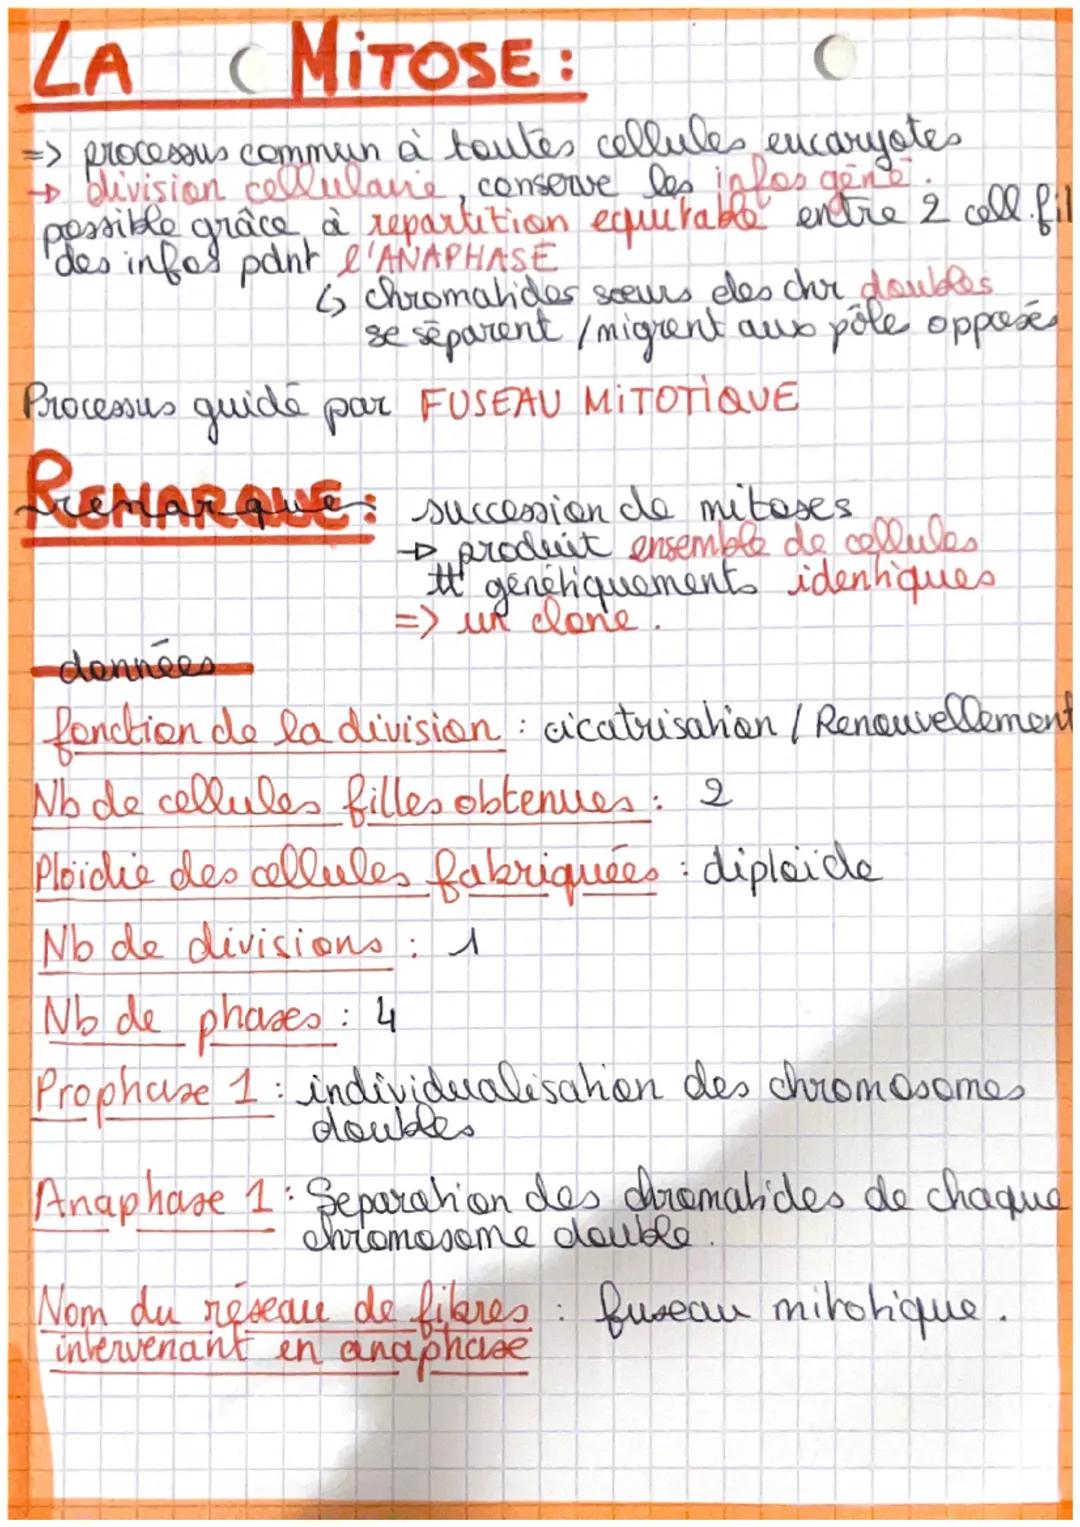 LA MiTOSE :
=> processus commun à toutes cellules eucaryotes
→ division cellulaire, conserve les infos géné.
possible grâce à repartition equitable entre 2 cell. fil
des infos pdnt l'ANAPHASE
↳ chromatides sœurs des chr doubles
se séparent / migrent aux pôle opposés
Processus guidé par FUSEAU MiTOTiQUE
REMARQUE : succession de mitoses
→ produit ensemble de cellules
tt génétiquements identiques
=> un clone.
données
fonction de la division : cicatrisation / Renouvellement
Nb de cellules filles obtenues : 2
Ploïdie des cellules fabriquées : diploïde
Nb de divisions : 1
Nb de phases : 4
Prophase 1 : individualisation des chromosomes
doubles
Anaphase 1 : Separation des chromatides de chaque
chromosome double.
Nom du réseau de fibres : fuseau mitotique.
intervenant en anaphase